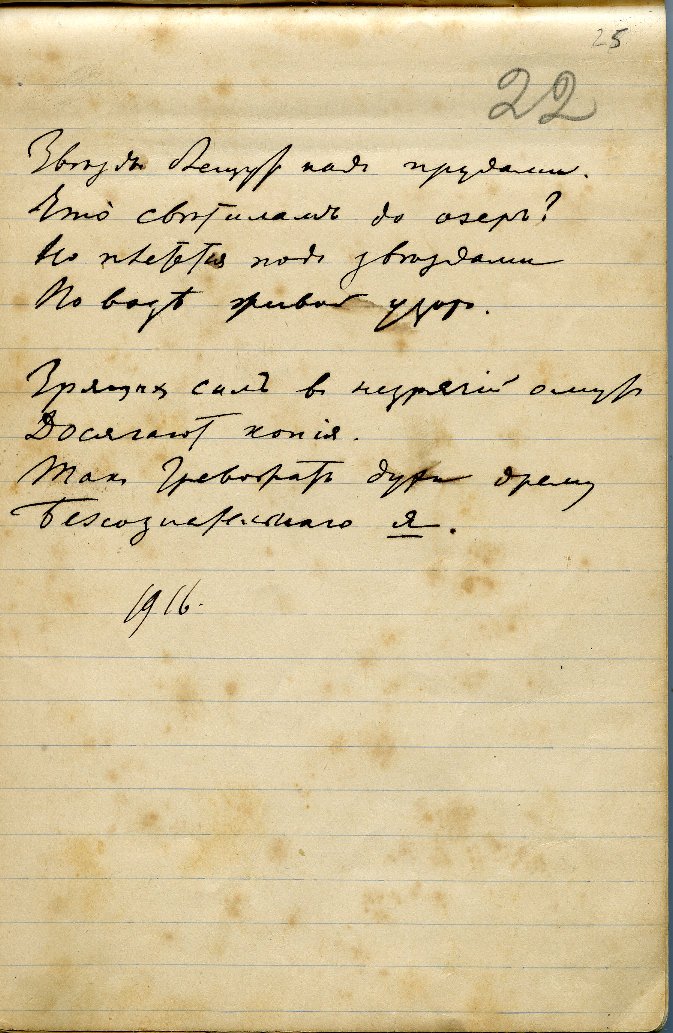 25
22
Звѣзды блещут надъ прудами.
Что свѣтиламъ до озеръ?
Но плетется подъ звѣздами
По водѣ живой узоръ.
Зрящих силъ в незрячій омут
Досягают копія.
Такъ тревожатъ духи дрему
Безсознательнаго я.
1916.